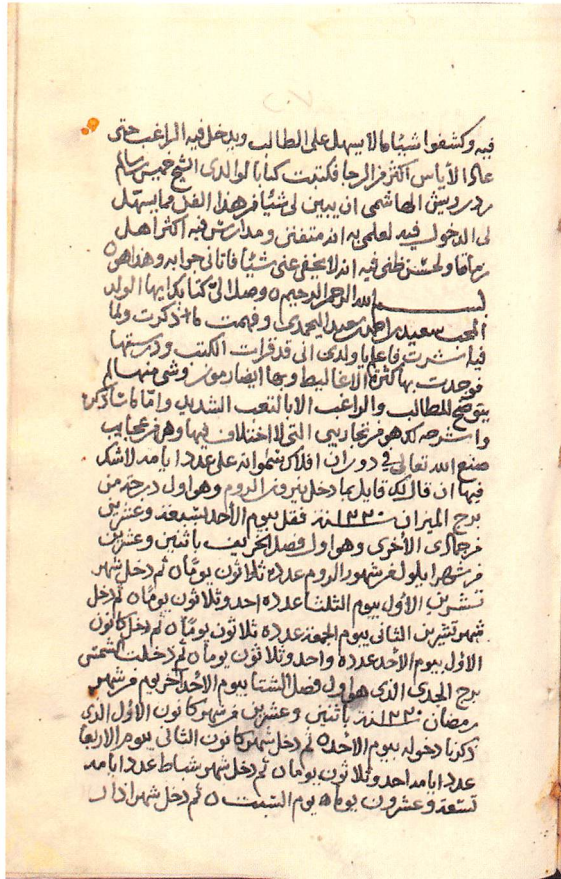 فيه وكشفوا شيئا مما لا يسهل على الطالب ويدخل فيه الراغب حتى
عاد الأياس اكثر من الرجا فكتبت كتابا لوالدى الشيخ خميس بن سالم
بن درويش الهاشمى ان يبين لى شيئا من هذا الفن وما يسهل
لى الدخول فيه لعلمى به انه متفنن ومدارس فيه اكثر اهل
زماننا ولحسن ظنى فيه انه لا يخفى عنى شيئا فاتانى جوابه وهذا هو
بسم الله الرحمن الرحيم وصل الىّ كتابك ايها الولد
المحب سعيد بن احمد بن سعيد اليحمدى وفهمت ما ذكرت ولما
فيه اشرت فاعلم يا ولدى انى قد قرات الكتب ودرستها
فوجدت بها كثرة الاغاليط وبها ايضا رموز وشى منها لم
يتوضح للطالب والراغب الا بالتعب الشديد واما ما ساذكره
واشرحه لك هو من تجاريبى التى لا اختلاف فيها وهى من عجايب
صنع الله تعالى فى دوران افلاك سمواته على عدد ايامه لا شك
فيها ان قال لك قايل بما دخل نيروز الروم وهو اول درجة من
برج الميزان سنة ١٣٣٠ فقل بيوم الأحد لتسعة وعشرين
من جمادى الأخرى وهو اول فصل الخريف باثنين وعشرين
من شهر ايلول من شهور الروم عدده ثلاثون يومًا ثم دخل شهر
تشرين الأول بيوم الثلثا عدده احد وثلاثون يومًا ثم دخل
شهر تشرين الثانى بيوم الجمعة عدده ثلاثون يومًا ثم دخل كانون
الاول بيوم الأحد عدده واحد وثلاثون يوما ثم دخلت الشمس
برج الجدى الذى هو اول فصل الشتا بيوم الأحد اخر يوم من شهر
رمضان سنة ١٣٣٠ باثنين وعشرين من شهر كانون الاول الذى
ذكرنا دخوله بيوم الأحد ثم دخل شهر كانون الثانى بيوم الاربعا
عدد ايامه احد وثلاثون يوما ثم دخل شهر شباط عدد ايامه
تسعة وعشرون يوما يوم السبت ثم دخل شهر اذار